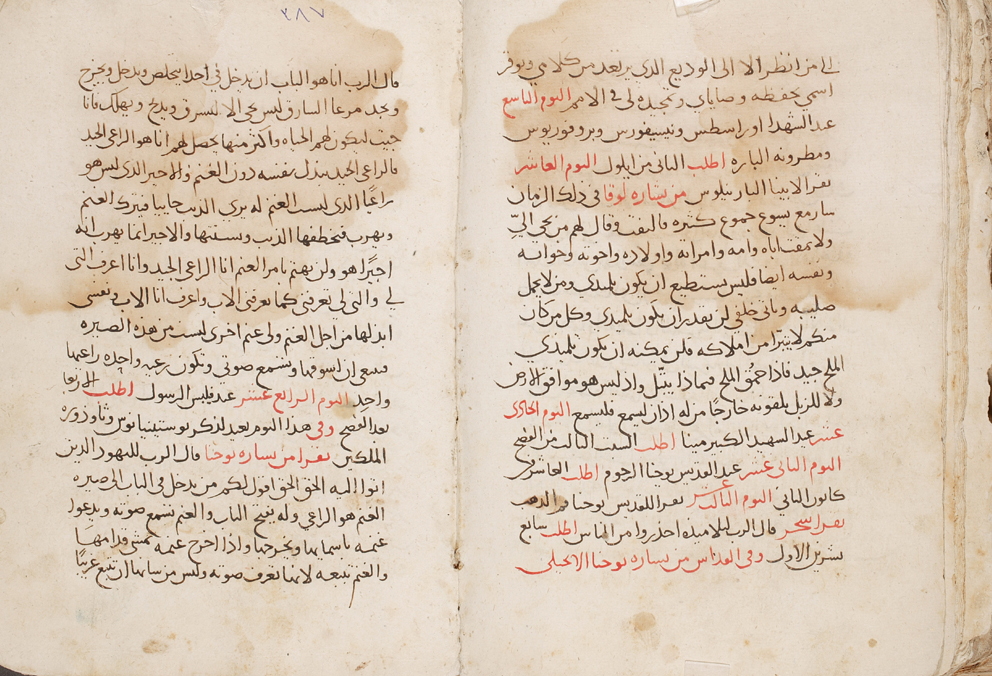 ٢٨٧
لي من انظر الا الى الوديع الذي يرتعد من كلامي ويوقر
اسمي بحفظه وصاياي وتمجيده لي في الامم اليوم التاسع
عيد الشهدا اوراسطس ونيسيفورس وبروفوريوس
ومطرونه الباره اطلب الثاني من ايلول اليوم العاشر
نقرا لابينا البار نيلوس من بشاره لوقا في ذلك الزمان
سار مع يسوع جموع كثيره فالتفت وقال لهم من يجي اليّ
ولا يمقت اباه وامه وامراته واولاده واخوته وخواته
ونفسه ايضا فليس يستطيع ان يكون تلميذي ومن لا يحمل
صليبه وياتي خلفي لن يقدر ان يكون تلميذي وكل من كان
منكم لا يتبرا من املاكه فلن يمكنه ان يكون تلميذي
الملح جيد فاذا حمق الملح فبماذا يتبّل واذ ليس هو موافق الارض
ولا للزبل يلقونه خارجًا من له اذان ليسمع فليسمع اليوم الحادي
عشر عيد الشهيد الكبير مينا اطلب السبت الثالث من الفصح
اليوم الثاني عشر عيد القديس يوحنا الرحوم اطلب العاشر في
كانون الثاني اليوم الثالث عشر نقرا للقديس يوحنا فم الذهب
نقرا سحر قال الرب لتلاميذه احذروا من الناس اطلب سابع
تشرين الاول وفي القداس من بشاره يوحنا الانجيلي
قال الرب انا هو الباب ان يدخل في احدا يخلص ويدخل ويخرج
ويجد مرعا السارق ليس يجي الا ليسرق ويذبح ويهلك فانا
جيت لتكون لهم الحياه واكثر منها يحصل لهم انا هو الراعي الجيد
فالراعي الجيد يبذل نفسه دون الغنم والاجير الذي ليس هو
راعيًا الذي ليست الغنم له يرى الذيب جاييا فيترك الغنم
ويهرب فيخطفها الذيب ويشتتها والاجير انما يهرب انه
اجيرًا هو ولن يهتم بامر الغنم انا الراعي الجيد وانا اعرف التي
لي والتي لي تعرفني كما يعرفني الاب واعرف انا الاب ونفسي
ابذلها من اجل الغنم ولي غنم اخرى ليست من هذه الصيره
فينبغي ان اسوقها وتسمع صوتي وتكون رعيه واحده راعيها
واحد اليوم الرابع عشر عيد فيلبس الرسول اطلب الاربعا
بعد الفصح وفي هذا اليوم نعيد لذكر يوستينيانوس وثاودوره
الملكين نقرا من بشاره يوحنا قال الرب لليهود الذين
اتوا اليه الحق الحق اقول لكم من يدخل في الباب الى صيره
الغنم هو الراعي وله يفتح الباب والغنم تسمع صوته ويدعوا
غنمه باسمايها ويخرجها واذا اخرج غنمه يمشي قدامها
والغنم تتبعه لانها تعرف صوته وليس من شانها ان تتبع غريبًا